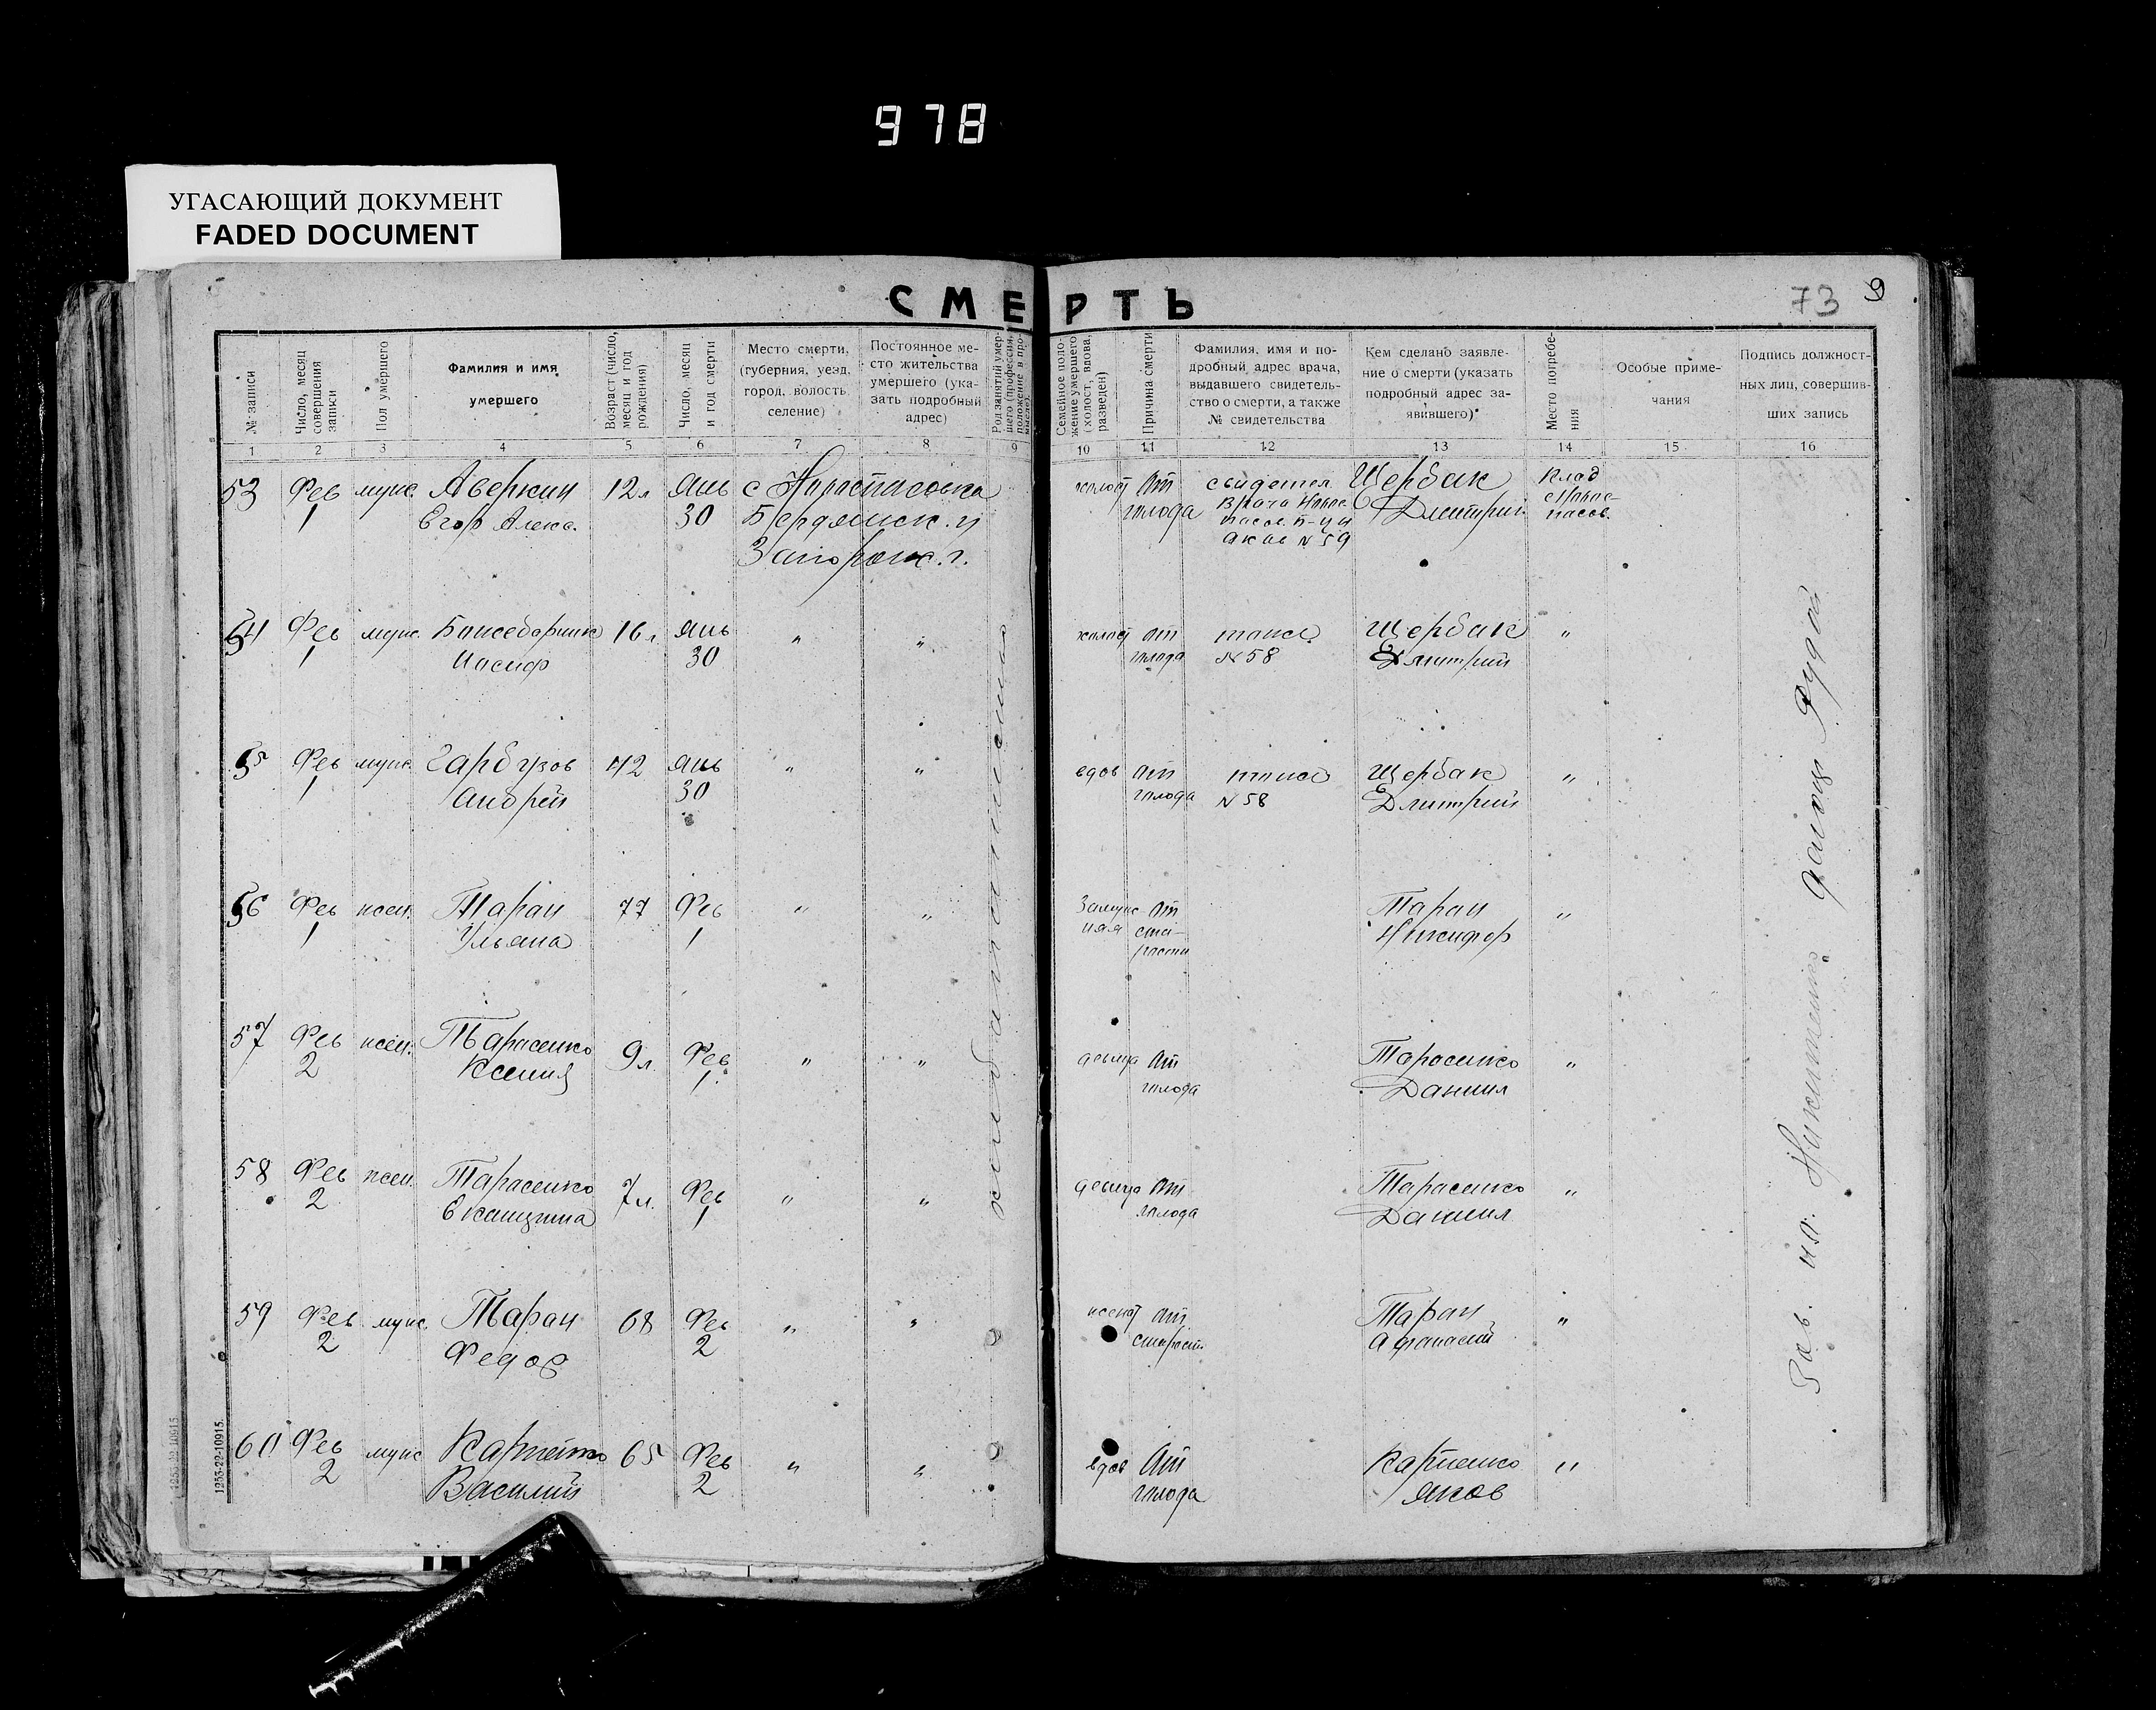 978
УГАСАЮЩИЙ ДОКУМЕНТ
FADED DOCUMENT
СМЕРТЬ
73 9
№ записи
Число, месяц совершения записи
Пол умершего
Фамилия и имя умершего
Возраст (число, месяц и год рождения)
Число, месяц и год смерти
Место смерти, (губерния, уезд, город, волость, селение)
Постоянное место жительства умершего (указать подробный адрес)
Род занятий умершего (профессия, положение в промысле).
Семейное положение умершего (холост, вдова, разведен)
Причина смерти
Фамилия, имя и подробный адрес врача, выдавшего свидетельство о смерти, а также № свидетельства
Кем сделано заявление о смерти (указать подробный адрес заявившего)
Место погребения
Особые примечания
Подпись должностных лиц, совершивших запись
1 2 3 4 5 6 7 8 9 10 11 12 13 14 15 16
53 Фев муж. Аверкин 12л Янь с Ногаспасовка холост От свидетел Щербак Клад
1 Егор Алекс. 30 Бердянск. у голода Врача Дмитрий
Запорож. г. N 59
54 Фев муж. 16л Янь " " холост От тоже Щербак "
1 Иосиф 30 голода N 58 Дмитрий
55 Фев муж. Гарбузов 42 Янь " " вдов От тоже Щербак "
1 Андрей 30 голода N 58 Дмитрий
56 Фев жен. Таран 77 Фев " " Замужняя От Таран "
1 Ульяна 1 старости Никифор
57 Фев жен. Тарасенко 9л Фев " " девица От Тарасенко "
2 Ксения 1 голода Даниил
58 Фев жен. Тарасенко 7л. Фев " " девица От Тарасенко "
2 1 голода Даниил
59 Фев муж. Таран 68 Фев " " женат От Таран "
2 Федор 2 старости Афанасий
60 Фев муж Карпенко 65 Фев " " вдов От Карпенко "
2 Василий 2 голода Яков
хлебопашество
Зав.
1253-22-10915.